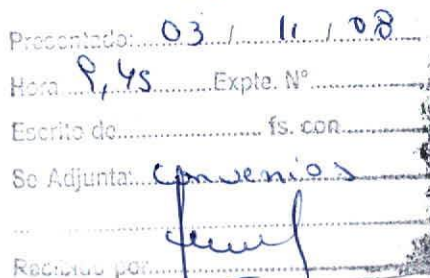 Presentado: 03 / 11 / 08
Hora 9,45 Expte. N°
Escrito de fs. con
Se Adjunta: convenios
Recibido por